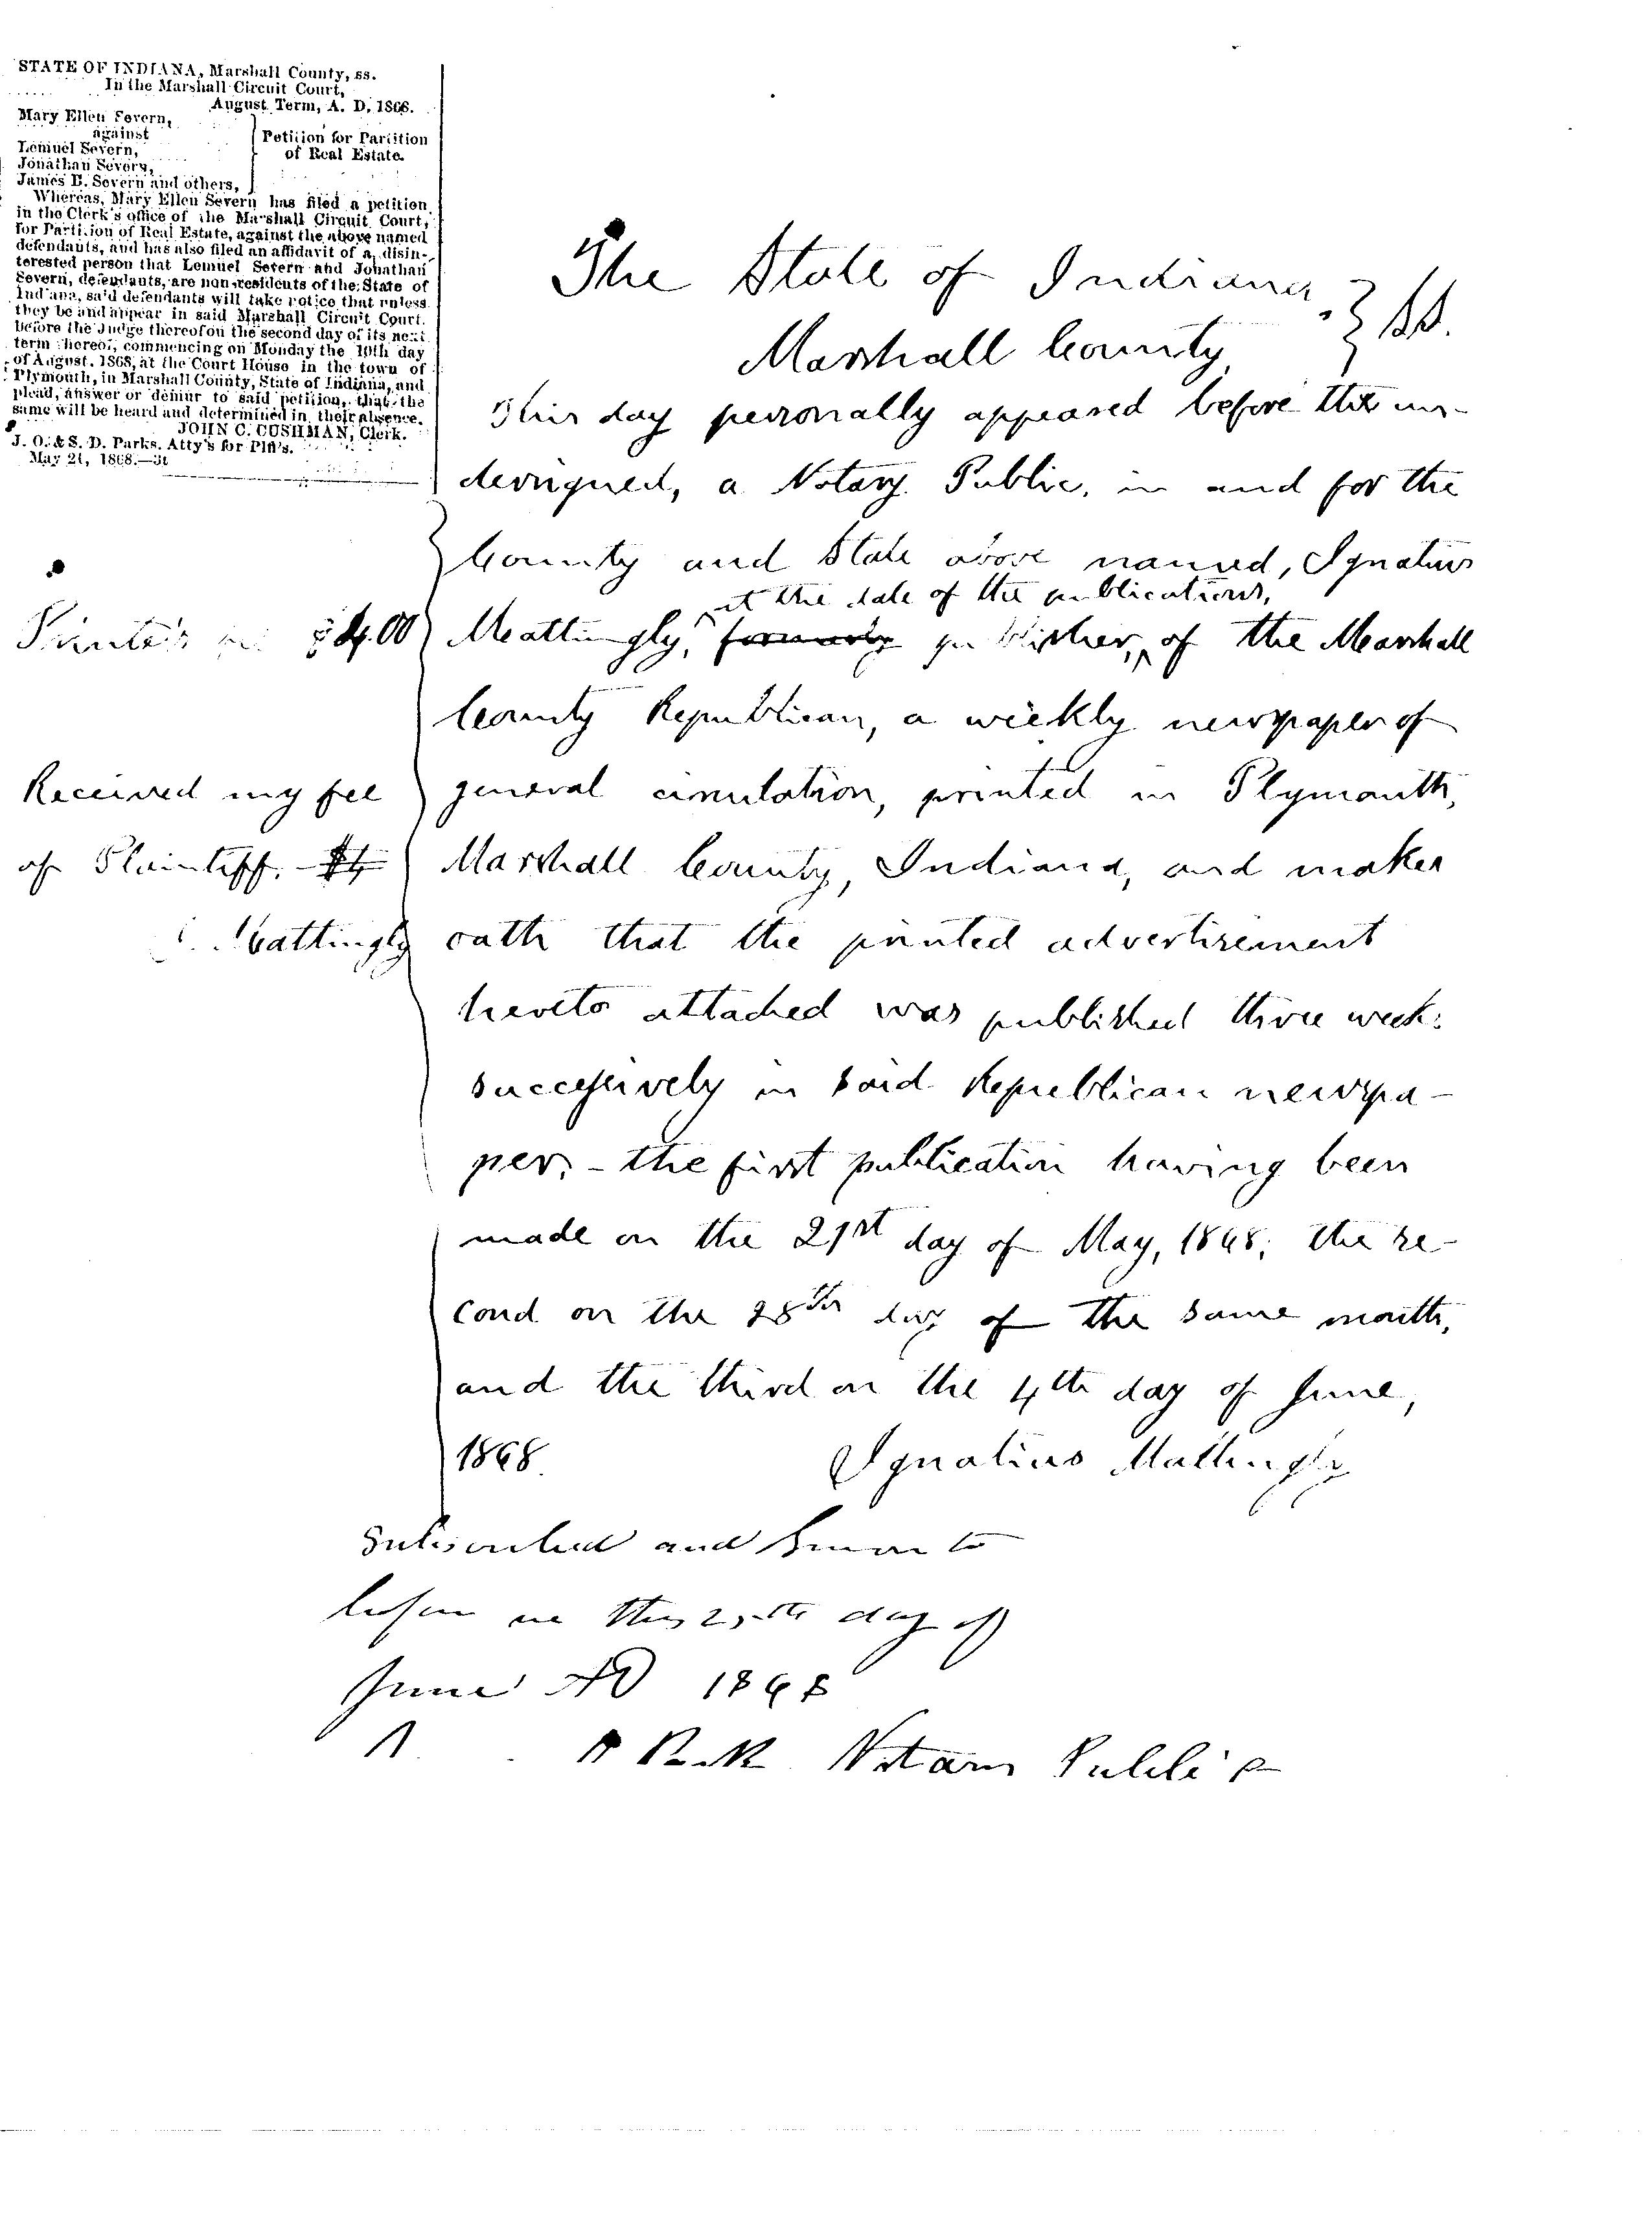 STATE OF INDIANA, Marshall County, ss.
In the Marshall Circuit Court,
August Term, A. D. 1868.
Mary Ellen Severn,
against
Lemuel Severn,
Jonathan Severn,
James B. Severn and others,
Petition for Partition
of Real Estate.
Whereas, Mary Ellen Severn has filed a petition
in the Clerk's office of the Marshall Circuit Court,
for Partition of Real Estate, against the above named
defendants, and has also filed an affidavit of a disin-
terested person that Lemuel Severn and Jonathan
Severn, defendants, are non-residents of the State of
Indiana, said defendants will take notice that unless
they be and appear in said Marshall Circuit Court,
before the Judge thereof on the second day of its next
term thereof, commencing on Monday the 10th day
of August, 1868, at the Court House in the town of
Plymouth, in Marshall County, State of Indiana, and
plead, answer or demur to said petition, that the
same will be heard and determined in their absence.
JOHN C. CUSHMAN, Clerk.
J. O. & S. D. Parks, Atty's for Plff's.
May 21, 1868.—3t
Printer's $4.00
Received my fee
of Plaintiff. $4
Mattingly
The State of Indiana
Marshall County } ss.
This day personally appeared before the un-
dersigned, a Notary Public, in and for the
County and State above named, Ignatius
at the date of the publications,
Mattingly, formerly publisher, of the Marshall
County Republican, a weekly newspaper of
general circulation, printed in Plymouth,
Marshall County, Indiana, and makes
oath that the printed advertisement
hereto attached was published three weeks
successively in said Republican newspa-
per; - the first publication having been
made on the 21st day of May, 1868; the se-
cond on the 28th day of the same month,
and the third on the 4th day of June,
1868.
Ignatius Mattingly
Subscribed and Sworn to
before me this 25th day of
June AD 1868
Notary Public